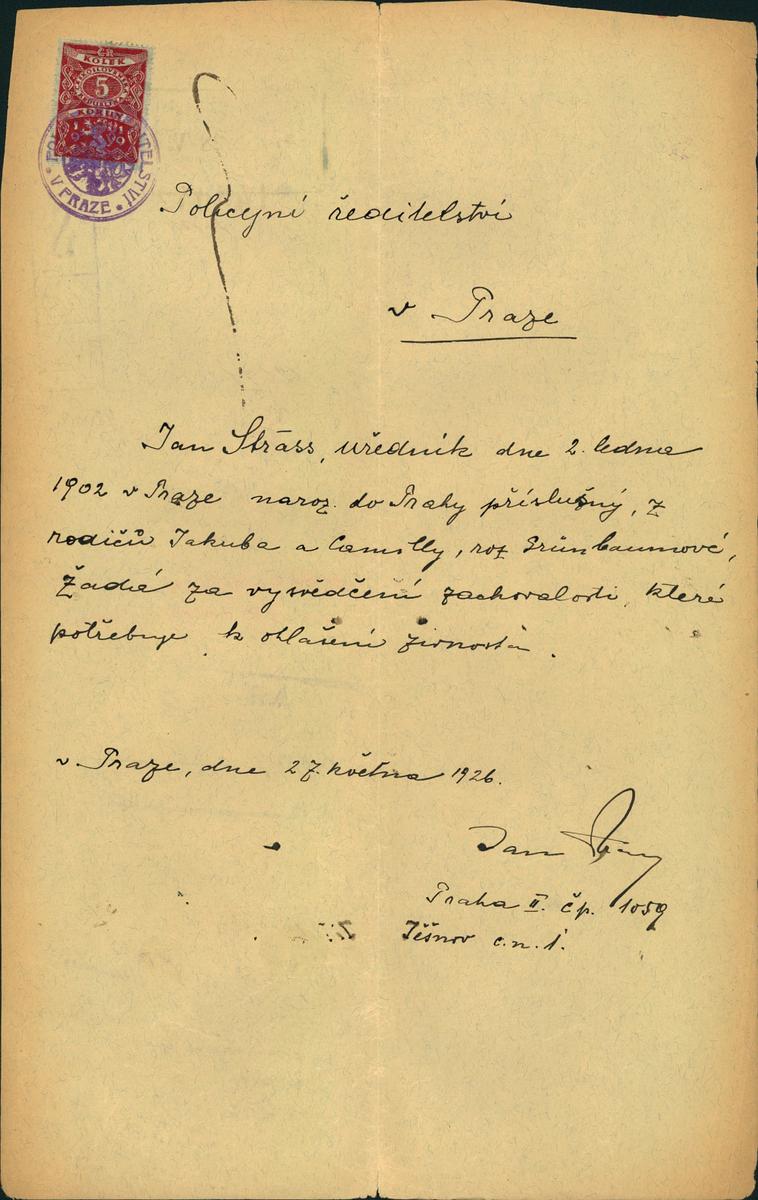 Č.R.
KOLEK
5
KORUN
1919
V PRAZE
Policejní ředitelství
v Praze
Jan Sträss, úředník dne 2. ledna
1902 v Praze naroz. do Prahy příslušný, z
rodičů Jakuba a Camilly, roz Grünbaumové,
žádá za vysvědčení zachovalosti, které
potřebuje k ohlášení živnosti.
v Praze, dne 27. května 1926.
Jan
Praha II. čp. 1059
Těšnov č.n. 1.